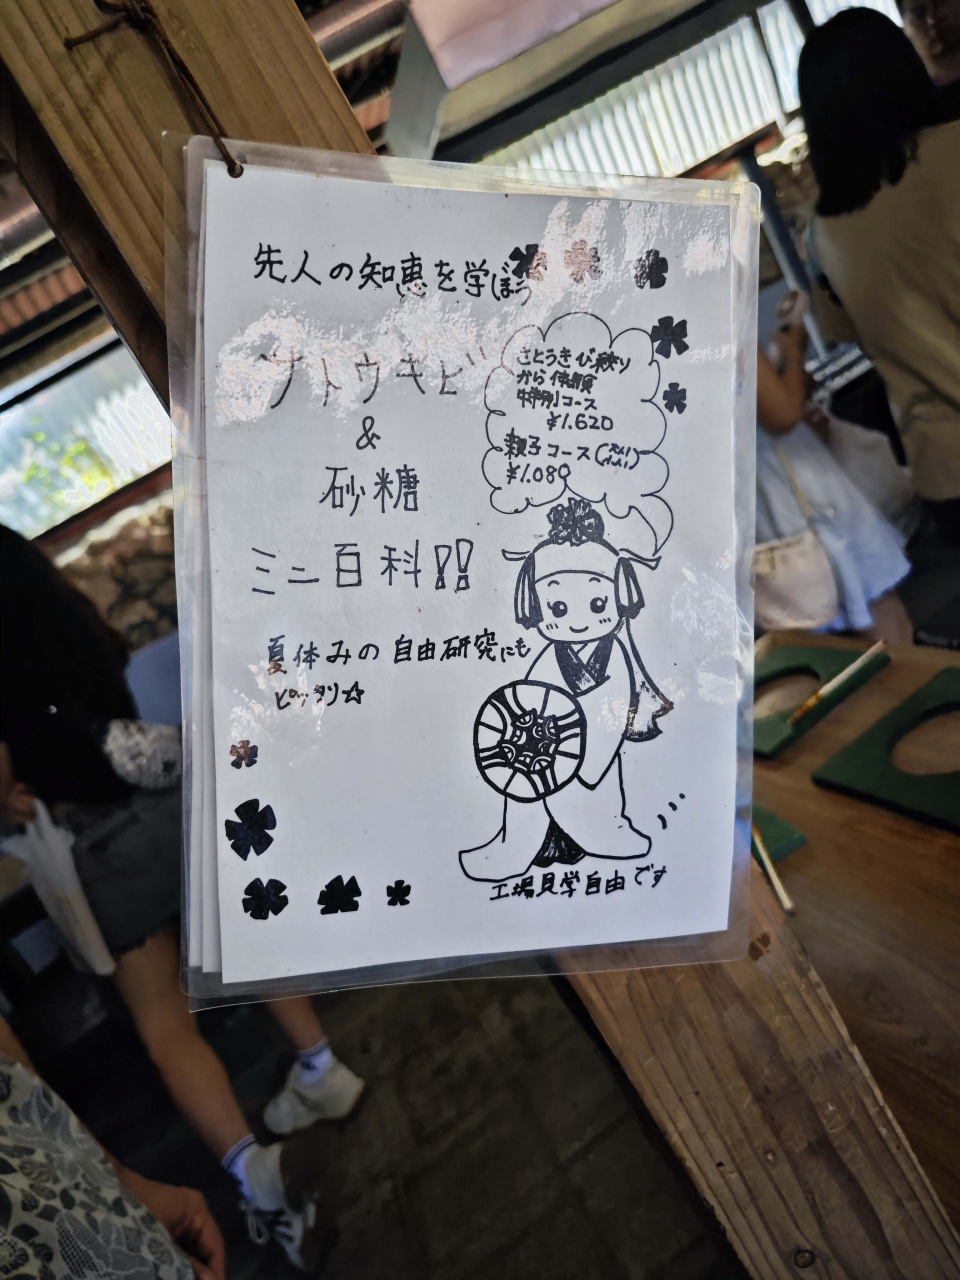 先人の知恵を学ぼう
サトウキビ
&
砂糖
ミニ百科!!
夏休みの自由研究にも
ピッタリ☆
さとうきび絞り
から体験
特別コース
¥1.620
親子コース
¥1.080
工場見学自由です